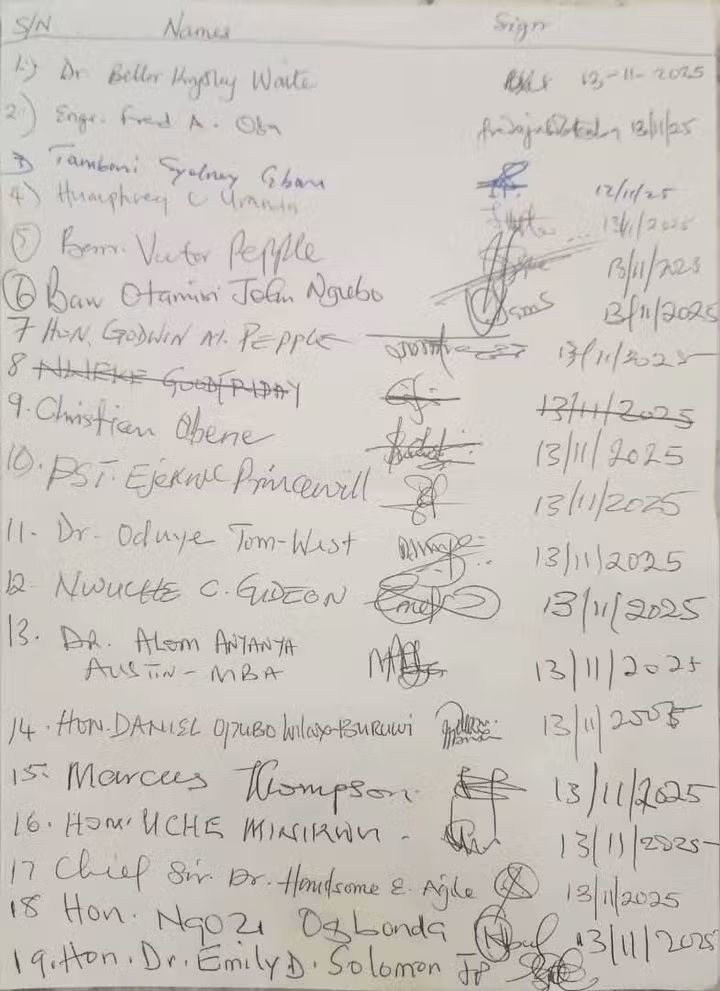 S/N Names Sign
1.) Dr Beller Kingsley Waite 13-11-2025
2) Engr. Fred A. Oba 13/11/25
3) Tamboni Sydney Gbara 12/11/25
4) Humphrey C 13/11/2025
5 Barr. Victor Pepple 13/11/2025
6 Baw Otamiri John Ngubo 13/11/2025
7 HON. GODWIN M. PEPPLE 13/11/2025
8 NWIEKE GOODFRIDAY 13/11/2025
9. Christian Obene 13/11/2025
10. PST. Ejekwu Princewill 13/11/2025
11. Dr. Oduye Tom-West 13/11/2025
12 NWUCHE C. GIDEON 13/11/2025
13. DR. ALOM ANYANYA 13/11/2025
AUSTIN-MBA
14. HON. DANIEL OPUBO 13/11/2005
15. Marcus Thompson. 13/11/2025
16. HON. UCHE MINIKWU - 13/11/2025
17 Chief Sir. Dr. Handsome E. Agile 13/11/2025
18 Hon. Ngozi Ogbonda 13/11/2025
19. Hon. Dr. Emily D. Solomon JP